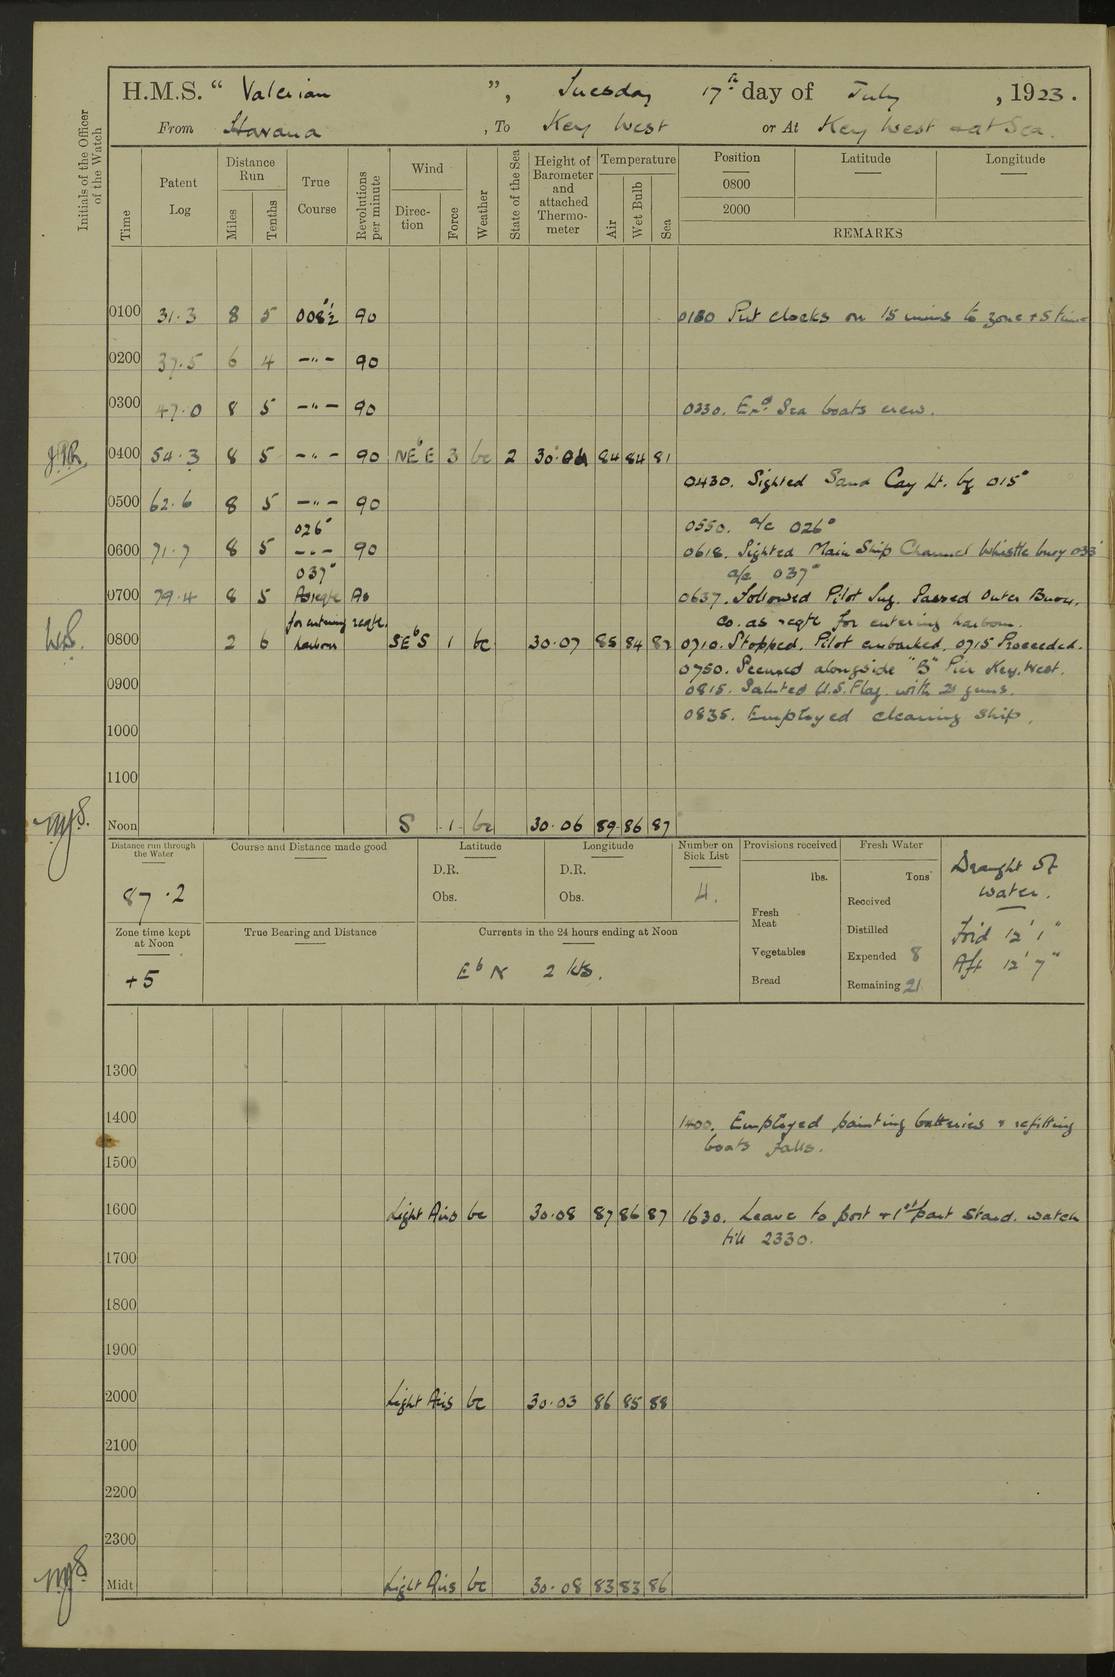 H.M.S. “ Valerian ”, Tuesday 17th day of July , 1923.
From Havana , To Key West or At Key West & at Sea.
Initials of the Officer of the Watch
Time
Patent Log
Distance Run
Miles
Tenths
True Course
Revolutions per minute
Wind
Direction
Force
Weather
State of the Sea
Height of Barometer and attached Thermometer
Temperature
Air
Wet Bulb
Sea
Position Latitude Longitude
0800
2000
REMARKS
0100 31.3 8 5 008½° 90 Put clocks on 15 mins to zone +5 time
0200 37.5 6 4 -"- 90
0300 47.0 8 5 -"- 90 0230. Exd. Sea boats crew.
0400 54.3 8 5 -"- 90 NEbE 3 bc 2 84 84 81
0430. Sighted Sand Cay Lt. bg 015°
0500 62.6 8 5 -"- 90
026° 0550. a/c 026°
0600 71.7 8 5 -"- 90 0618. Sighted Main Ship Channel Whistle buoy 033°
037° a/c 037°
0700 79.4 8 5 As reqte As 0637. Followed Pilot Jug. Passed Outer Buoy.
for entering reqte. Co. as reqte for entering harbour.
W.S. 0800 2 6 harbour SEbS 1 bc 30.07 85 84 82 0710. Stopped. Pilot embarked. 0715 Proceeded.
0750. Secured alongside "B" Pier Key West.
0900 0815. Saluted U.S. Flag. with 21 guns.
0835. Employed cleaning ship.
1000
1100
Noon S 1 bc 30.06 89 86 87
Distance run through the Water
87.2
Course and Distance made good
Latitude
D.R.
Obs.
Longitude
D.R.
Obs.
Number on Sick List
4.
Provisions received
lbs.
Fresh Meat
Vegetables
Bread
Fresh Water
Tons
Received
Distilled
Expended 8
Remaining 21
Draught of
water.
Fo'd 12' 1"
Aft 12' 7"
Zone time kept at Noon
+5
True Bearing and Distance
Currents in the 24 hours ending at Noon
EbN 2 kts.
1300
1400 1400. Employed painting batteries & refitting
boats falls.
1500
1600 Light Airs bc 30.08 87 86 87 1630. Leave to port & 1st part Starbd. watch
till 2330.
1700
1800
1900
2000 Light Airs bc 30.03 86 85 88
2100
2200
2300
Midt Light Airs bc 30.08 83 83 86